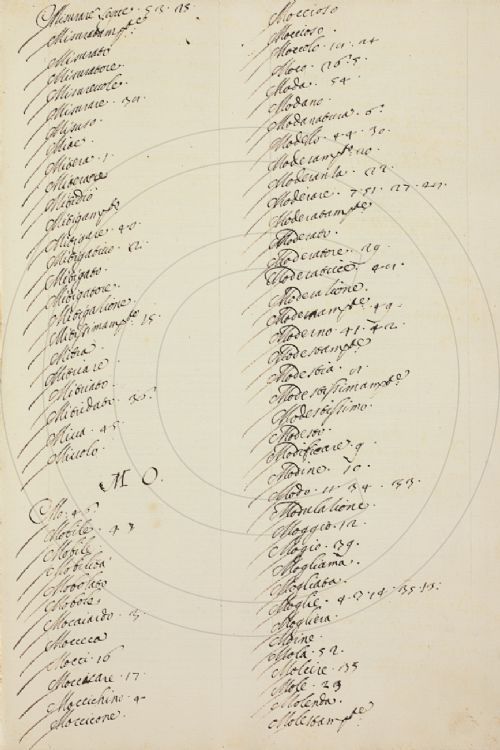 Misurare Lance. 53. 28.
Misuratamte
Misurato
Misuratore.
Misurevole.
Misurare. 30.
Misuso.
Mite.
Mitera. 1.
Miterare
Mitidio
Mitigamte
Mitigare. 40.
Mitigativo. 2.
Mitigato.
Mitigatore.
Mitigatione.
Mitissimamte. 15.
Mitra.
Mitriare
Mitriato.
Mitridate. 36.
Miua. 45.
Miuolo.
M O.
Mo. 46
Mobile. 43
Mobile
Mobilità
Mobolato
Mobole.
Mocaiardo. 3.
Mocceca
Mocci. 16
Moccicare. 17.
Moccichino. 4.
Moccicone.
Moccioso
Moccioso.
Moccolo. 12. 21
Moco. 26. 5.
Moda. 54.
Modano
Modanatura. 6.
Modello. 44. 30.
Moderamte. 20.
Moderanza. 22.
Moderare. 7. 51. 27. 21.
Moderatamte
Moderato.
Moderatore. 29.
Moderatrice. 41.
Moderatione.
Modernamte. 49.
Moderno. 41. 42.
Modestamte
Modestia. 11.
Modestissimamte
Modestissimo.
Modesto.
Modificare. 9.
Modine. 10.
Modo. 11. 34. 33.
Modulatione.
Moggio. 12.
Mogio. 39.
Mogliama.
Mogliata.
Moglie. 4. 7. 14. 35. 13.
Mogliera.
Moine.
Mola. 52.
Molcire. 35
Mole. 23
Molenda.
Molestamte